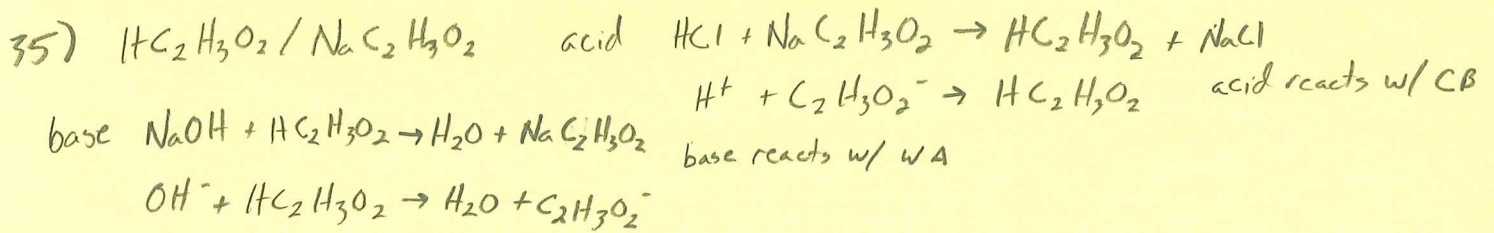 35) HC₂H₃O₂ / NaC₂H₃O₂ acid HCl + NaC₂H₃O₂ → HC₂H₃O₂ + NaCl
H⁺ + C₂H₃O₂⁻ → HC₂H₃O₂ acid reacts w/ CB
base NaOH + HC₂H₃O₂ → H₂O + NaC₂H₃O₂ base reacts w/ WA
OH⁻ + HC₂H₃O₂ → H₂O + C₂H₃O₂⁻